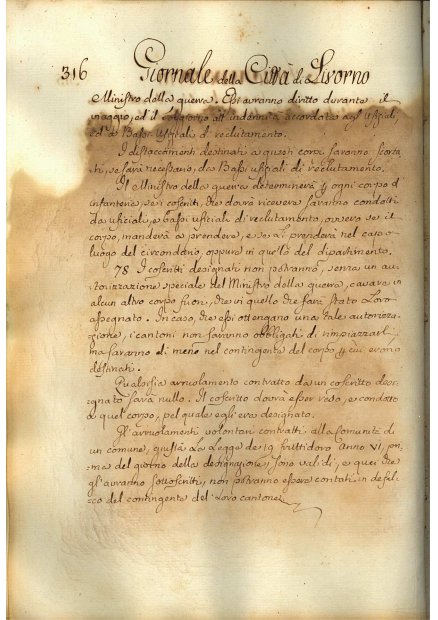 316 Giornale della Città di Livorno
Ministro della guerra. Essi avranno diritto durante il
viaggio, ed il all'indennità accordata agl'Ufiziali,
ed a' Bassi Ufiziali di reclutamento.
I distaccamenti destinati a questi corpi saranno scorta-
ti, se sarà necessario, da Bassi ufiziali di reclutamento.
Il Ministro della guerra determinerà ogni corpo d'
infanteria, se i coscritti, che dovrà ricevere saranno condotti
da ufiziali, e bassi ufiziali di reclutamento, ovvero se il
corpo, manderà a prendere, e se li prenderà nel capo
luogo del circondario, oppure in quello del dipartimento.
78 I coscritti designati non potranno, senza un au-
torizzazione speciale del Ministro della guerra, entrare in
alcun altro corpo fuori, che in quello che sarà stato Loro
assegnato. In caso, che essi ottengano una tale autorizza-
zione, i cantoni non saranno obbligati di rimpiazzarli,
ma saranno di meno nel contingente del corpo cui erano
destinati.
Qualsisia arruolamento contratto da un coscritto desi-
gnato sarà nullo. Il coscritto dovrà esser reso, e condotto
a quel corpo, pel quale egli era designato.
Gl'arruolamenti volontari contratti alla Comunità di
un comune, giusta La Legge de 19 fruttidoro Anno VI, pri-
ma del giorno della designazione, sono validi, e quei che
gl'avranno sottoscritti, non potranno essere contati in defal-
co del contingente del Loro cantone